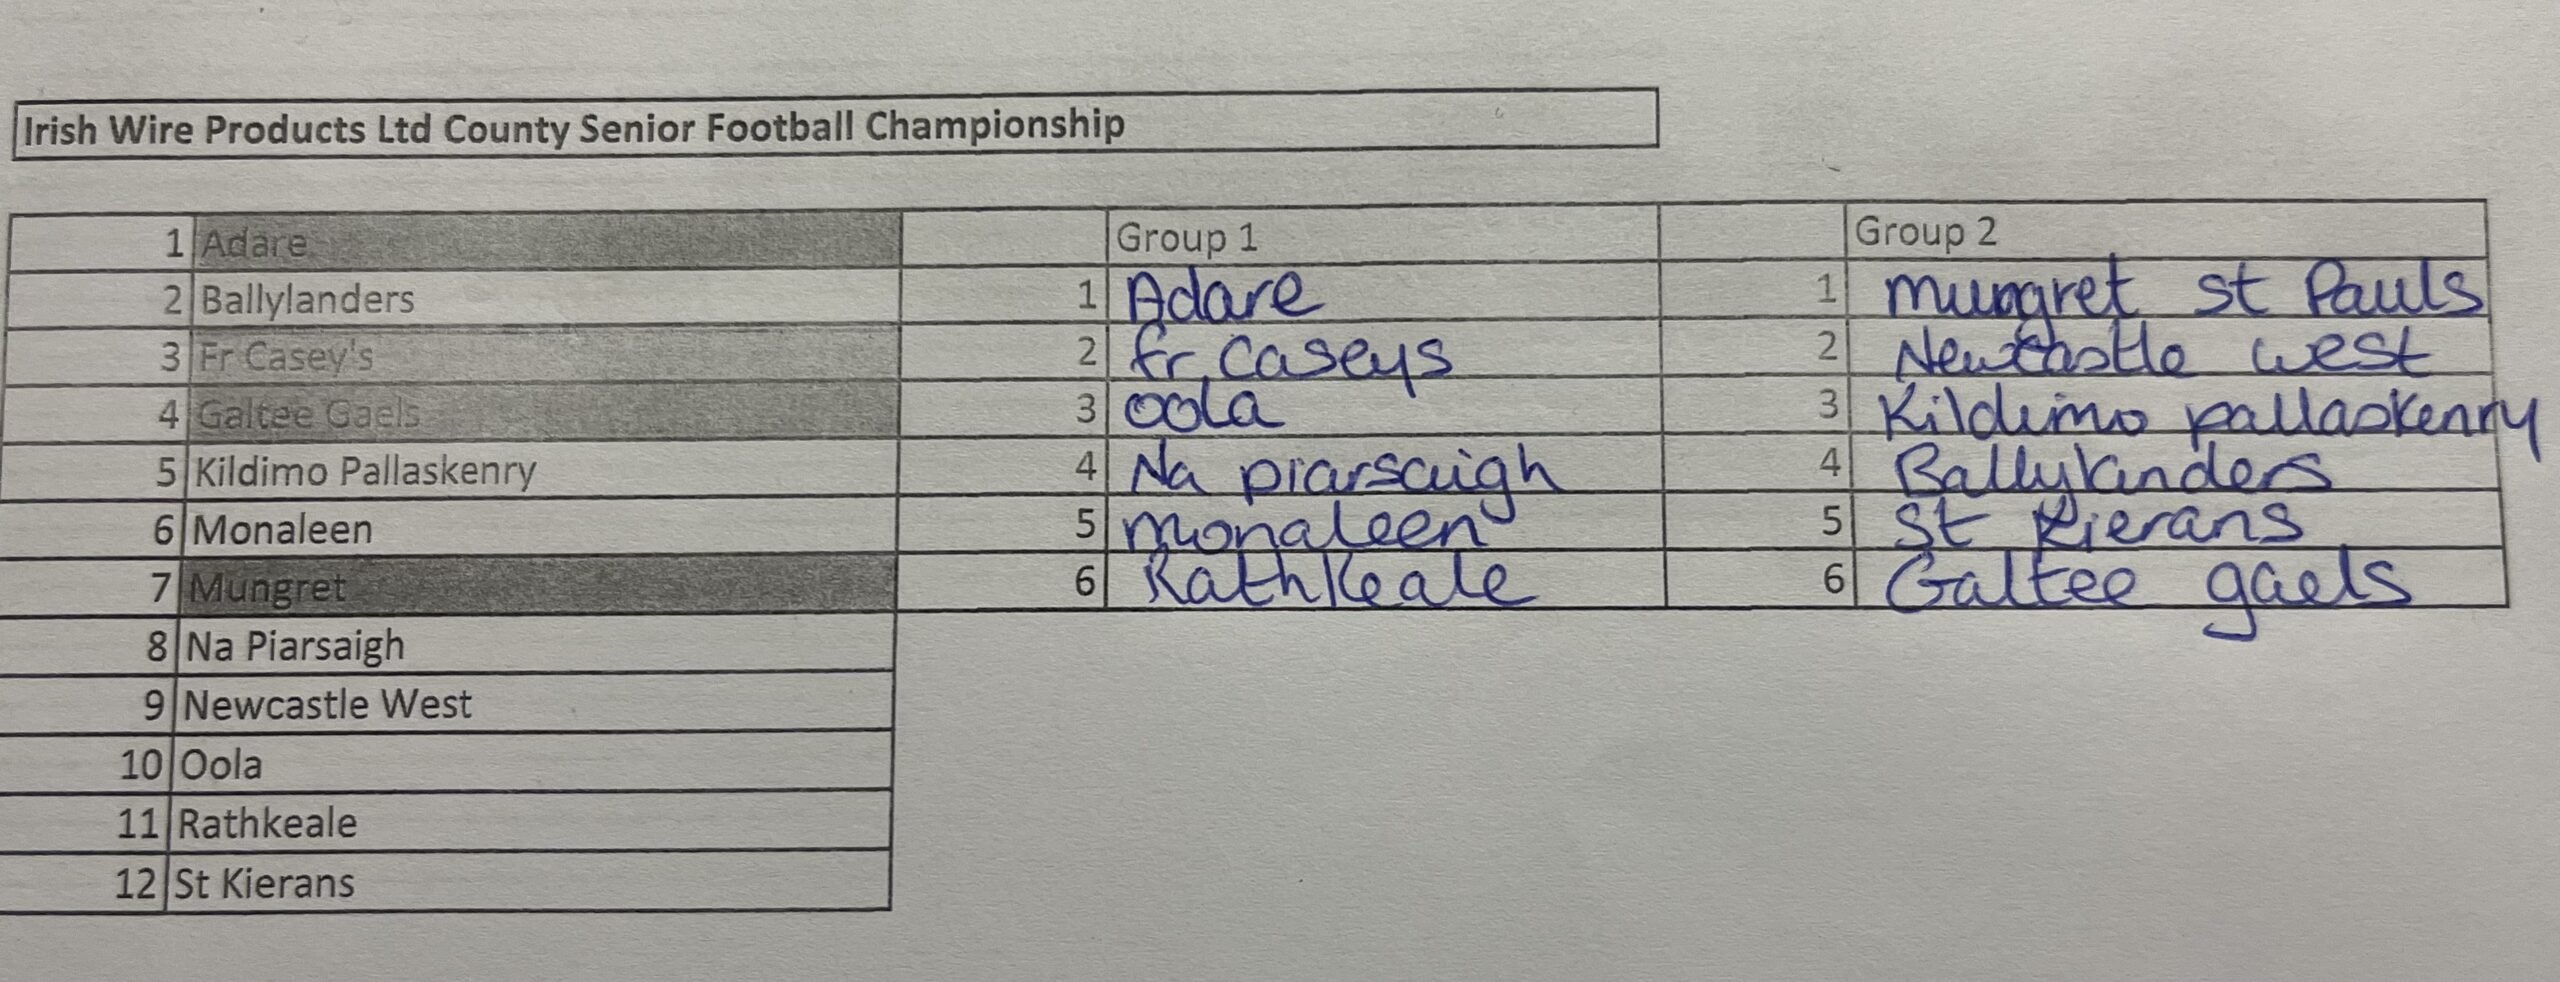 Irish Wire Products Ltd County Senior Football Championship
1 Adare Group 1 Group 2
2 Ballylanders 1 Adare 1 Mungret St Pauls
3 Fr Casey's 2 Fr Caseys 2 Newcastle West
4 Galtee Gaels 3 Oola 3 Kildimo pallaskenry
5 Kildimo Pallaskenry 4 Na piarsaigh 4 Ballylanders
6 Monaleen 5 Monaleen 5 St Kierans
7 Mungret 6 Rathkeale 6 Galtee gaels
8 Na Piarsaigh
9 Newcastle West
10 Oola
11 Rathkeale
12 St Kierans